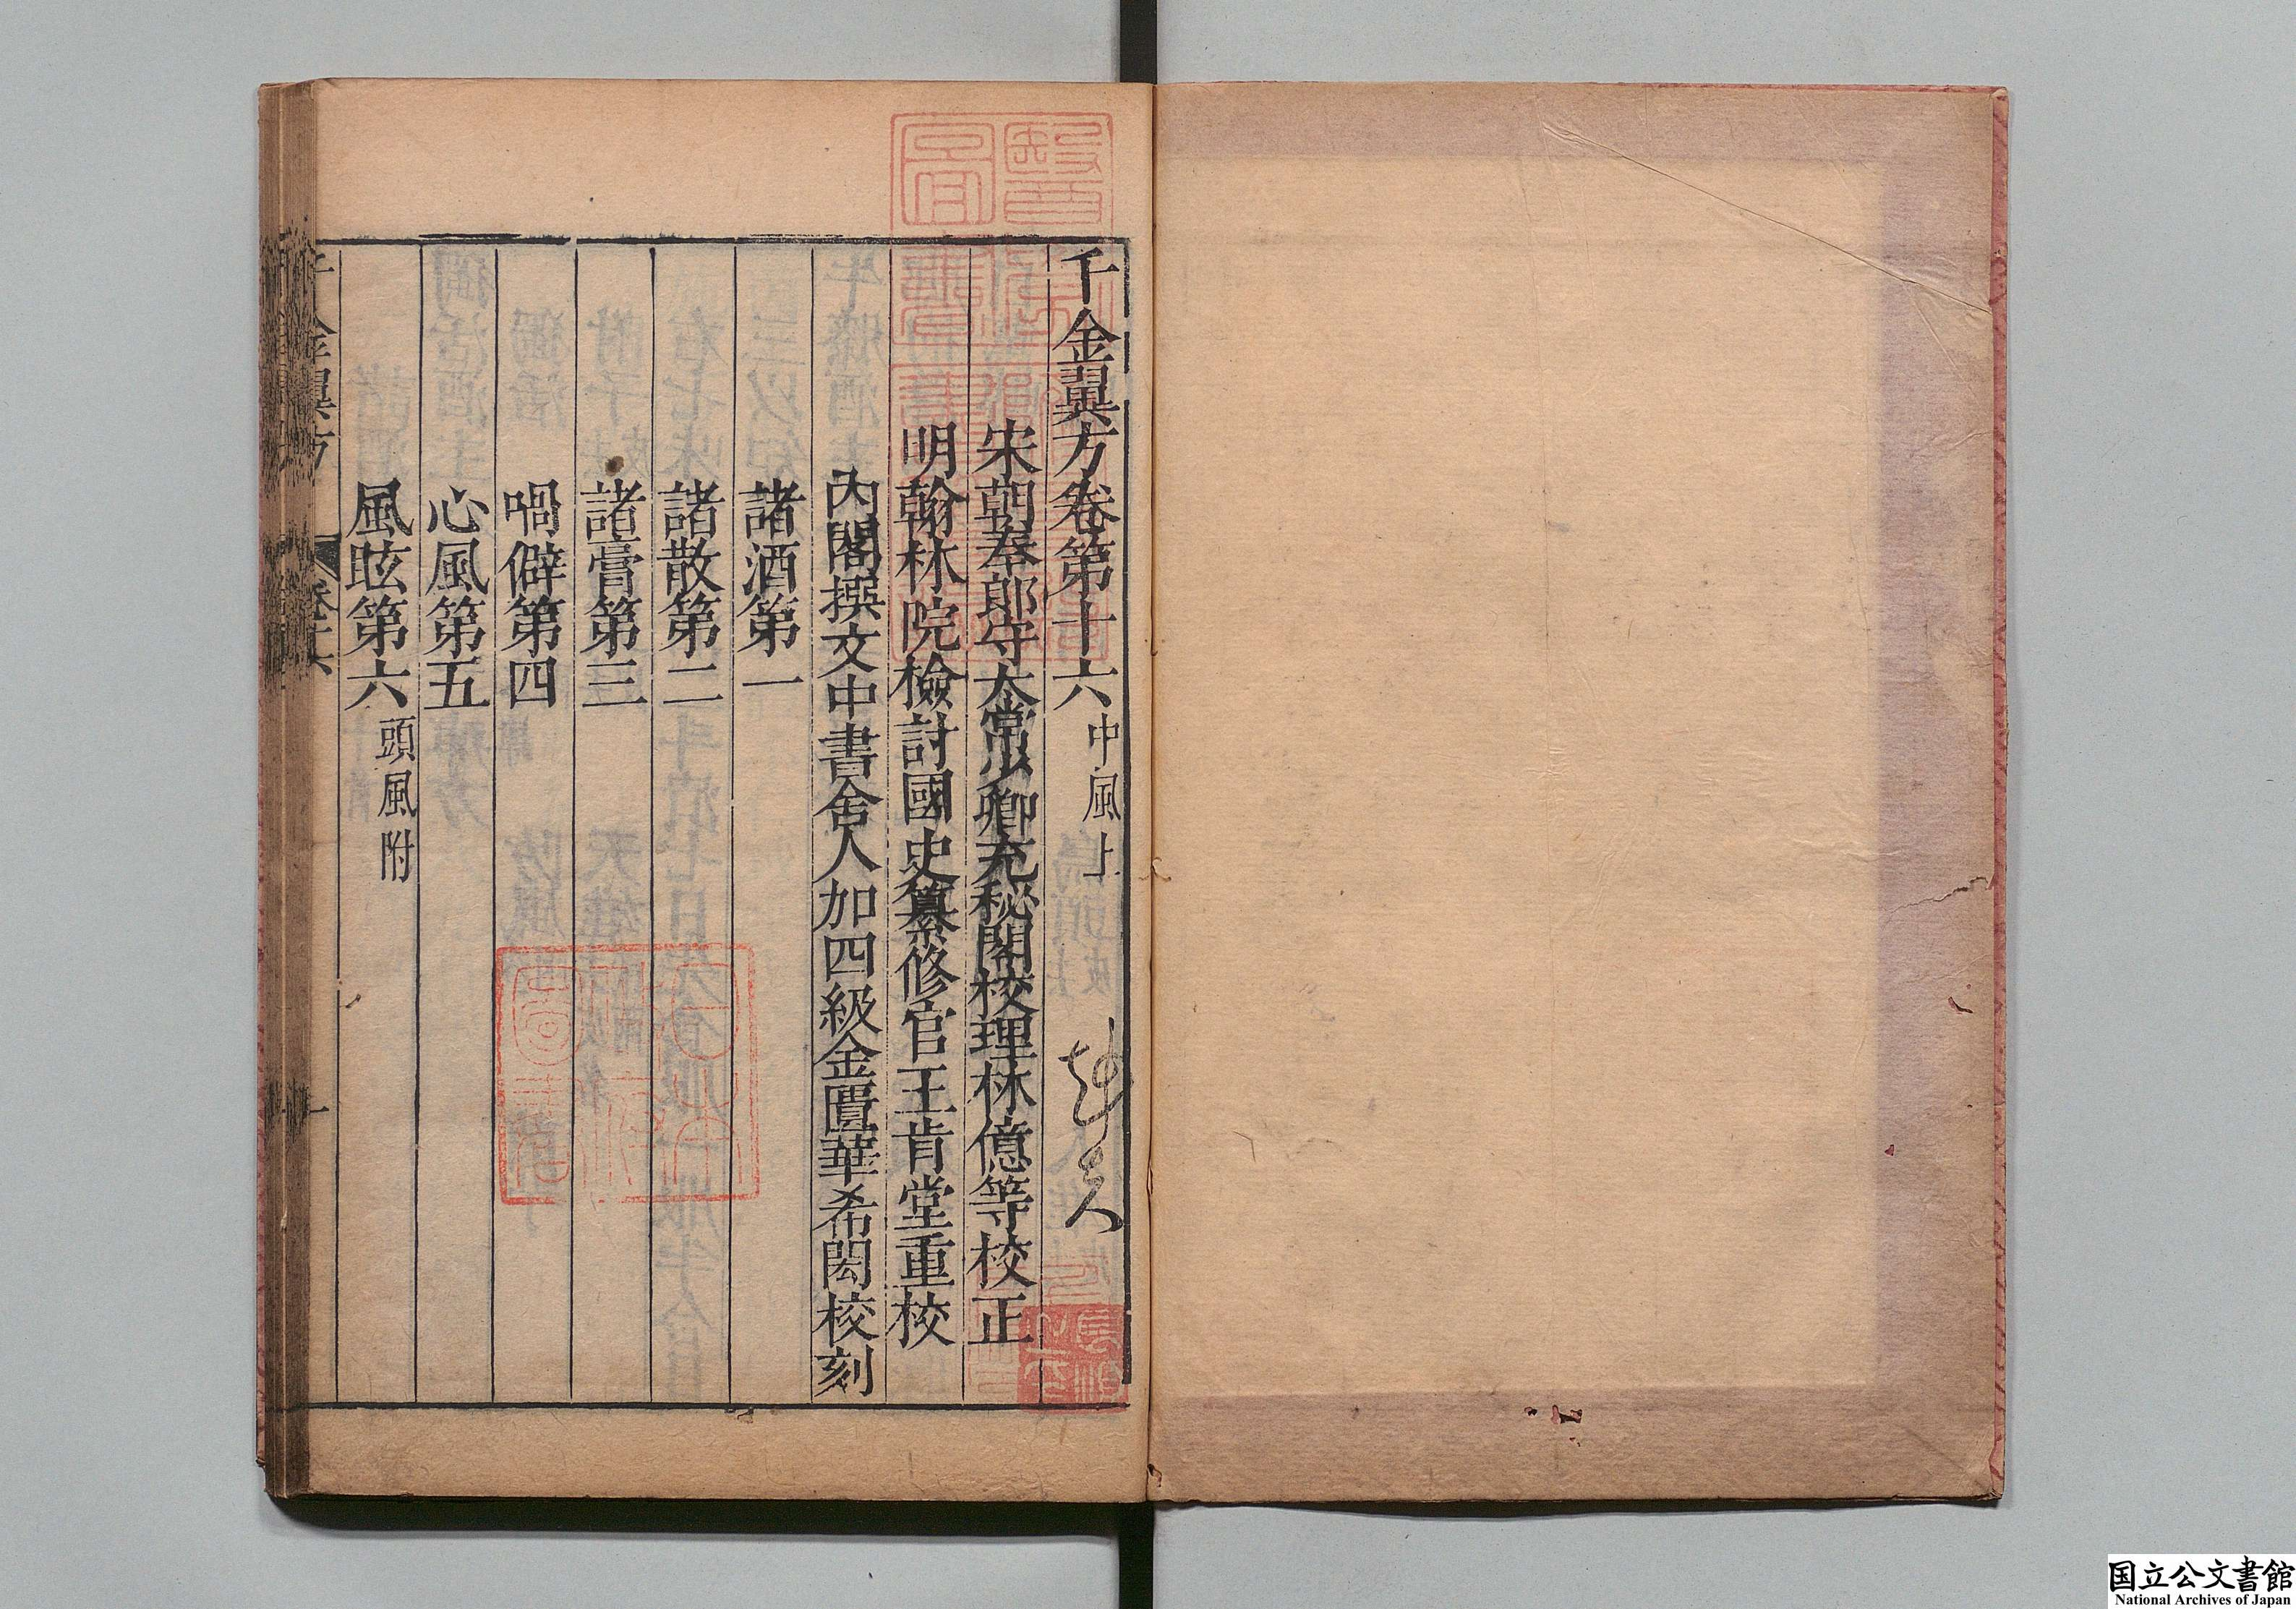 千金翼方卷第十六 中風上
宋朝奉郎守太常少卿充秘閣校理林億等校正
明翰林院檢討國史纂修官王肯堂重校
內閣撰文中書舍人加四級金匱華希閎校刻
諸酒第一
諸散第二
諸膏第三
喎僻第四
心風第五
風眩第六 頭風附
千金翼方 卷十六 一
国立公文書館
National Archives of Japan